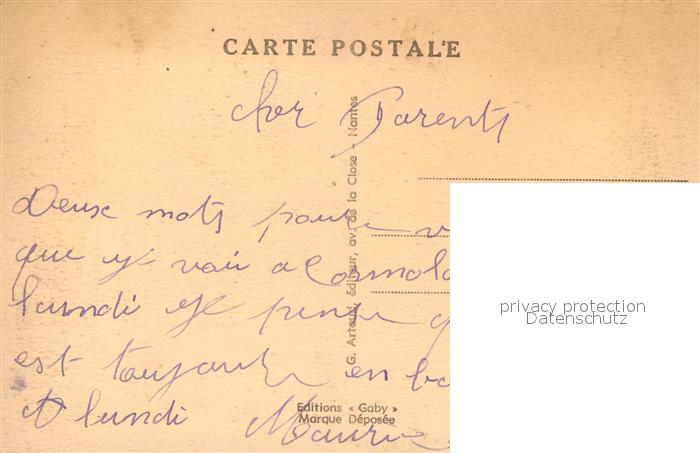 CARTE POSTALE
cher Parents
Deux mots pour
que je vai a
lundi je pense
est toujours en
A lundi Mauric
G. Artaud, éditeur, av. de la Close - Nantes
Editions « Gaby »
Marque Déposée
privacy protection
Datenschutz